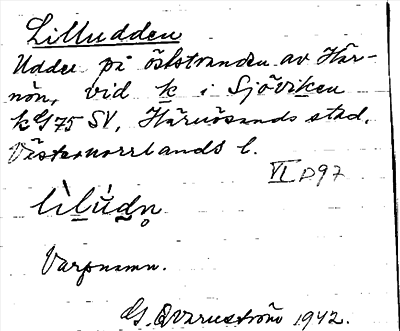 Lilludden
Udde på östsidan av Här-
nön, vid k i Sjöviken
kbl 75 SV, Härnösands stad,
Västernorrlands l.
VI D97
lìlúdn̥
Varpnamn.
G. Qvarnström 1942.